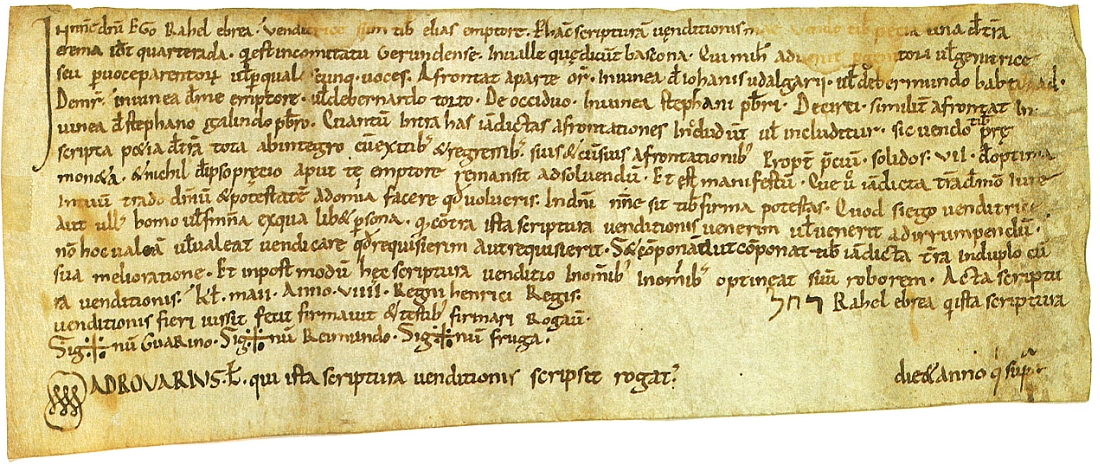 In nmē dnī. Ego Rahel ebrea. venditrice sum tibi elias emptore. P hāc scripturā venditionis meę vendo tibi petia una de trā
erema idst quarterada. q est in comitatu Gerundense. In ville quę dicunt bascona. Qui mihi advenit p genitori vl genitrice
seu p voce parentorū vl p qualicunq voces. Afrontat a parte orī. In vinea d iohanis udalgarii. vl de bermundo
Demr̄. in vinea d me emptore. vl de bernardo torto. De occiduo. In vinea stephani pbri. De circi. similit afrontat in
vinea d stephano galindo pbro. Quantū intra has iādictas afrontationes includūt vl includitur. sic vendo tibi prę
scripta pecia d trā tota ab integro cū exitib & regressib suis & cū suis afrontationib. Propt pciū. solidos. VII. d optima
moneta. & nichil d ipso precio aput te emptore remansit ad solvendū. Et est manifestū. Que v iādicta trā d mō iure
In tuū trado dmiū & potestatē ad omnia facere qd volueris. In dnī nmē sit tibi firma potestas. Quod si ego venditrice
Aut ullus homo vl femina ex qua lib& psona. q cōtra ista scriptura venditionis venerim vl venerit ad irrumpendū.
nō hoc valeā vl valeat vendicare qd requisierim aut requisierit. S& cōponā aut cōponat tibi iādicta trā in duplo cū
sua melioratione. Et in post modū hec scriptura venditio In omib In omib optineat suū roborem. Acta scriptu
ra venditionis. Kl. maii. Anno. VIIII. Regni henrici Regis. רחל Rahel ebrea q ista scriptura
venditionis fieri iussit fecit firmavit & testib firmari Rogavī.
Sig✢nū Guarino. Sig✢nū Reimundo. Sig✢nū fruga.
ADROVARIUS. qui ista scriptura venditionis scripsit rogat. die & anno q sup